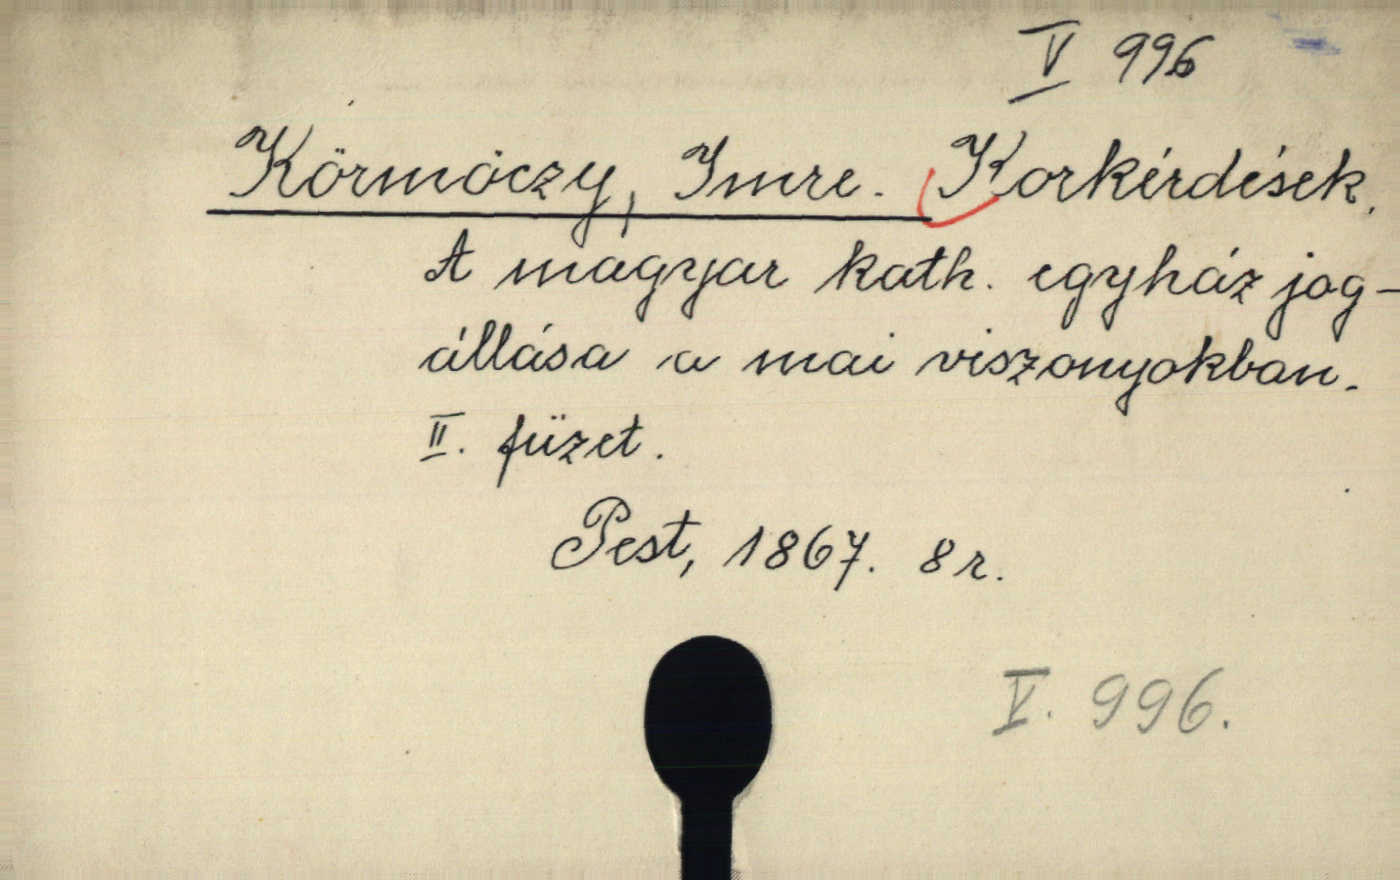 V 996
Körmöczy, Imre. Korkérdések.
A magyar kath. egyház jog-
állása a mai viszonyokban.
II. füzet.
Pest, 1867. 8 r.
V. 996.